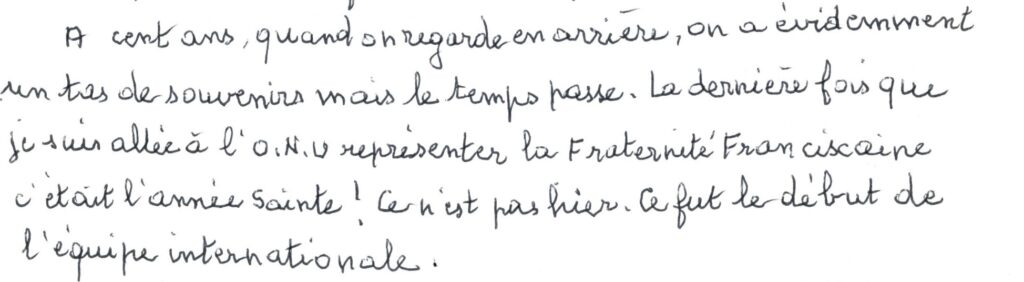 A cent ans, quand on regarde en arrière, on a évidemment
un tas de souvenirs mais le temps passe. La dernière fois que
je suis allée à l'O.N.U représenter la Fraternité Franciscaine
c'était l'année Sainte ! Ce n'est pas hier. Ce fut le début de
l'équipe internationale.